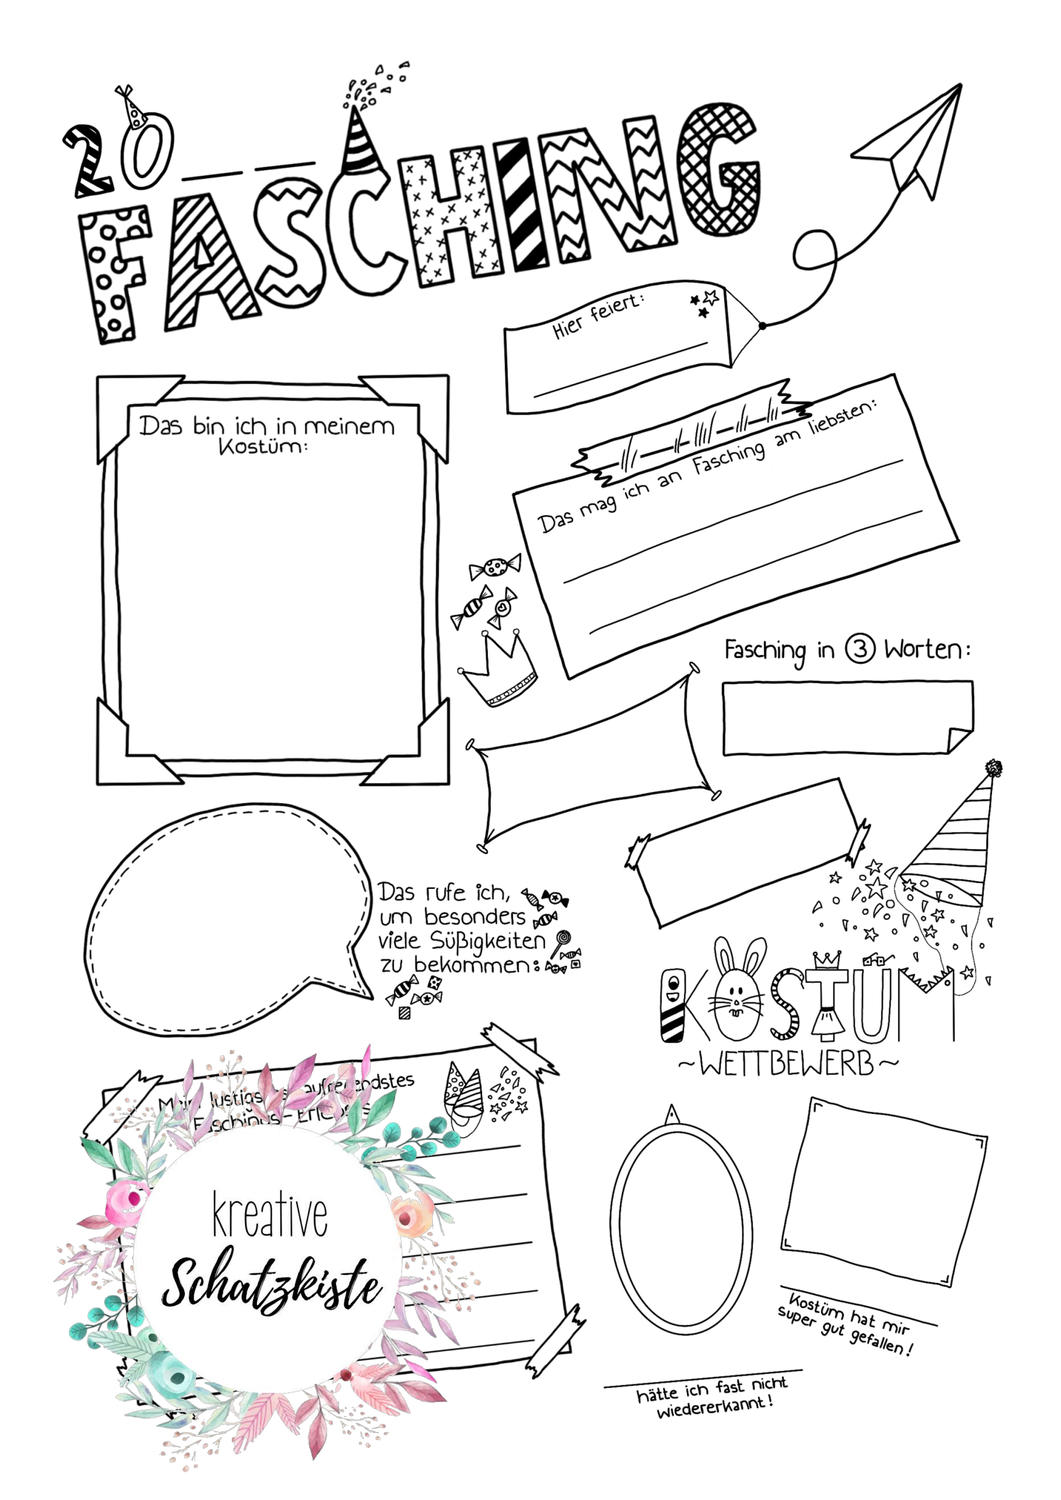 20 _ _
FASCHING
Hier feiert:
Das bin ich in meinem
Kostüm:
Das mag ich an Fasching am liebsten:
Fasching in 3 Worten:
Das rufe ich,
um besonders
viele Süßigkeiten
zu bekommen:
KOSTÜM
~WETTBEWERB~
Mein
Faschings-
kreative
Schatzkiste
Kostüm hat mir
super gut gefallen!
hätte ich fast nicht
wiedererkannt!